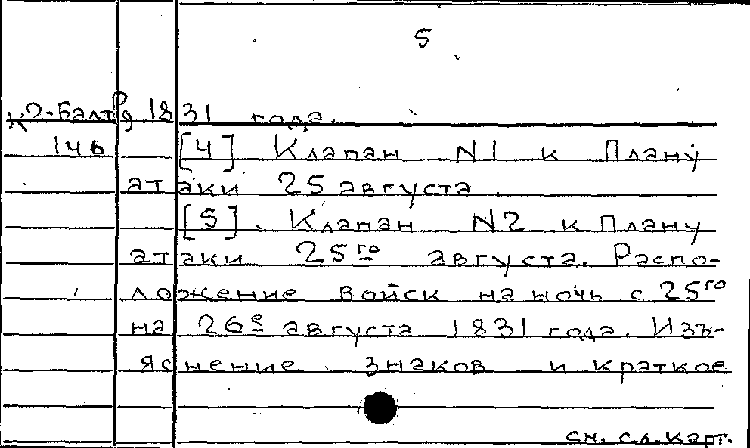 5
К2-Балт Р/9 1831 года.
146 [4] Клапан N1 к Плану
атаки 25 августа
[5]. Клапан N2 к Плану
атаки 25го августа. Распо-
ложение войск на ночь с 25го
на 26е августа 1831 года. Изъ-
яснение знаков и краткое
см. сл. карт.